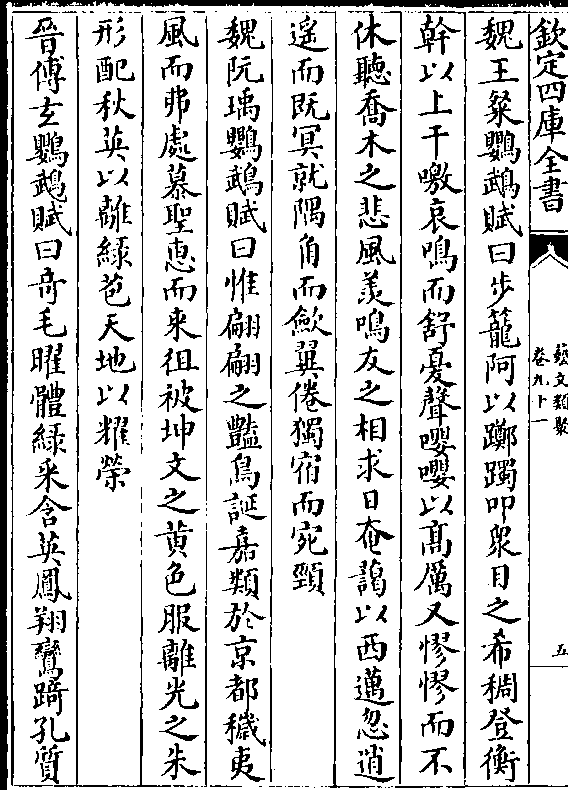 欽定四庫全書
藝文類聚
卷九十一
五
魏王粲鸚鵡賦曰步籠阿以躑躅叩衆目之希稠登衡
幹以上干噭哀鳴而舒憂聲嚶嚶以髙厲又憀憀而不
休聽喬木之悲風羡鳴友之相求日奄藹以西邁忽逍
遥而既冥就隅角而歛翼倦獨宿而宛頸
魏阮瑀鸚鵡賦曰惟翩翩之豔鳥誕嘉類於京都穢夷
風而弗處慕聖惠而来徂被坤文之黄色服離光之朱
形配秋英以離緑苞天地以耀榮
晉傅玄鸚鵡賦曰奇毛曜體緑采含英鳳翔鸞跱孔質